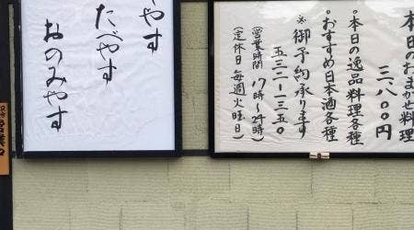 本日のおまかせ料理
三、八〇〇円
・本日の逸品料理各種
・おすすめ日本酒各種
※御予約承ります
五三二-一三五〇
(営業時間 17時〜24時)
(定休日 毎週火曜日)
やす
たべやす
おのみやす